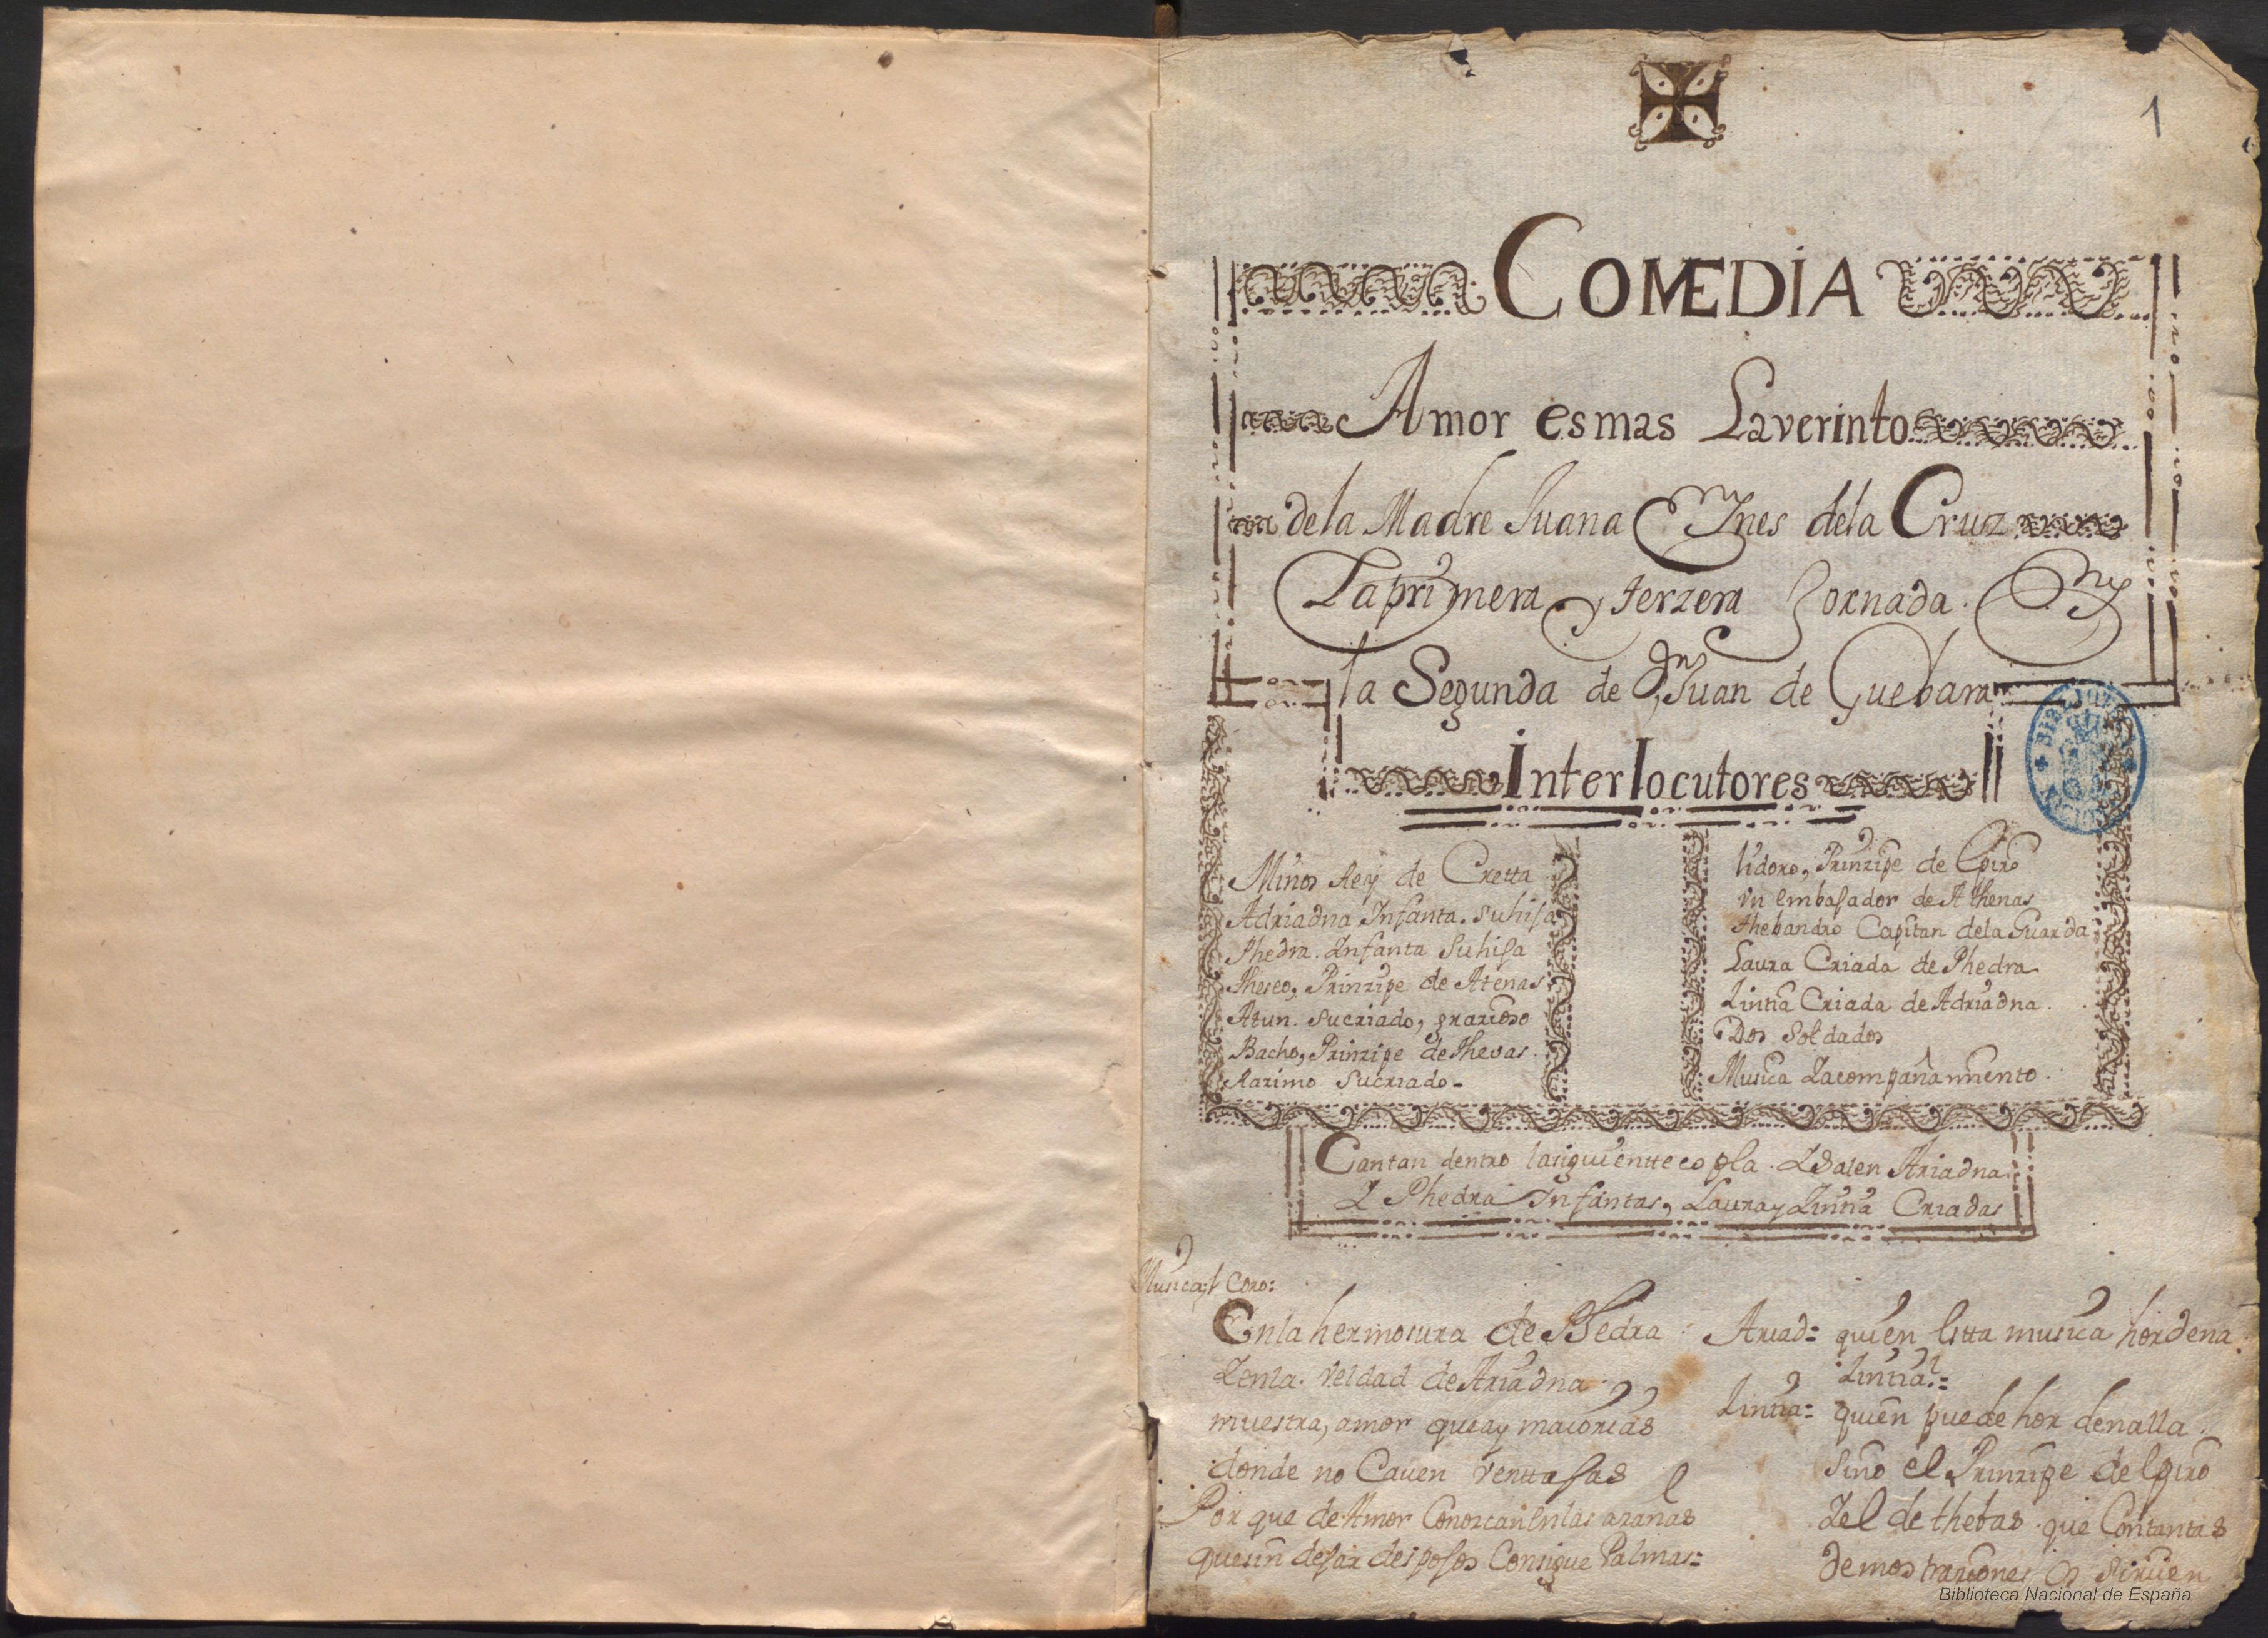 1
COMEDIA
Amor es mas Laverinto
de la Madre Juana Ynes de la Cruz
La primera y terzera Jornada. Y
la Segunda de Dn Juan de Guebara
Interlocutores
Minos Rey de Cretta
Adriadna Infanta. su hija
Phedra. Infanta Su hija
Theseo, Prinzipe de Atenas
Atun. su criado, grazioso
Bacho, Prinzipe de Thevas.
Razimo su criado-
lidoro, Prinzipe de Epiro
Un embajador de Athenas
thebandro Capitan de la Guarda
Laura Criada de Phedra
Zintia Criada de Adriadna.
Dos Soldados
Musica Y acompañamiento.
Cantan dentro la siguientte copla. Y Salen Ariadna
Y Phedra Infantas, Laura y Zintia Criadas
Musica, coro:
En la hermosura de Phedra
Y en la veldad de Ariadna
muestra, amor que ay maiorias
donde no Caven venttajas
Por que de Amor Conozcan en las azañas
que sin dejar despojos Consigue Palmas=
Ariad= quien estta musica hordena
Zintia?=
Zintia= quien puede hordenalla.
Sino el Prinzipe de epiro
Y el de thebas. que Con tantas
demostraziones os sirven
Biblioteca Nacional de España